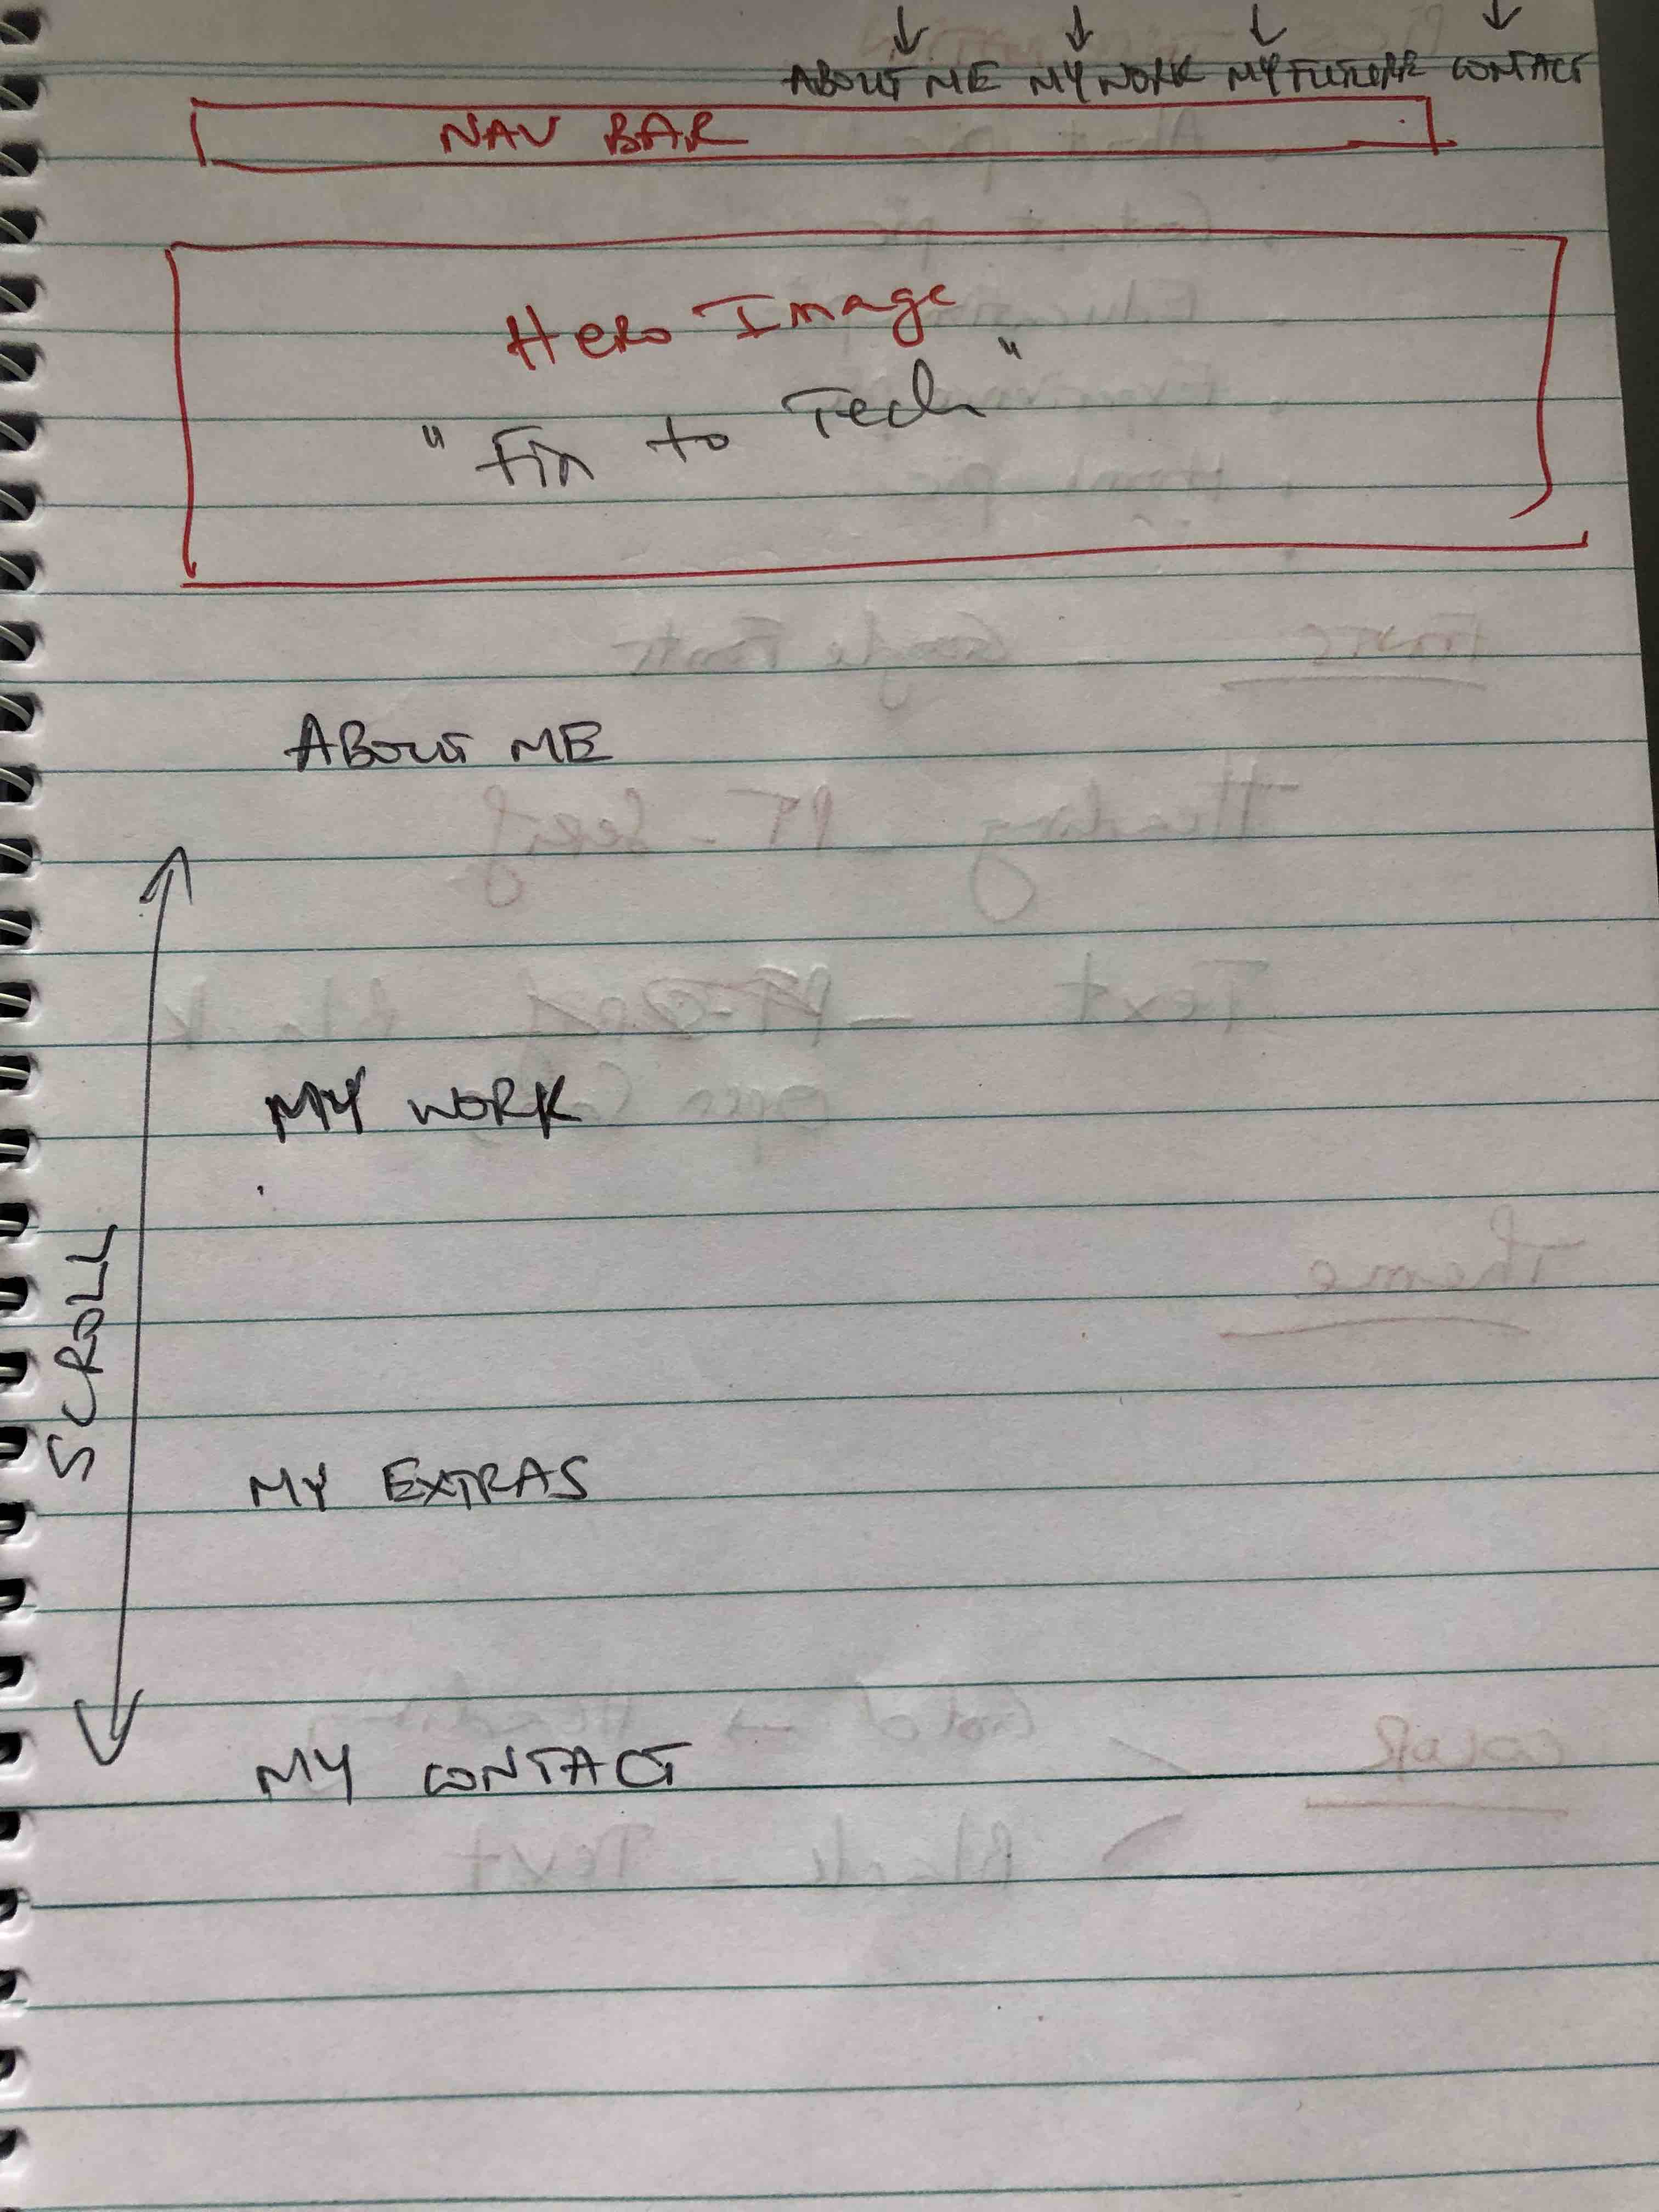 ABOUT ME MY WORK MY FUTURE CONTACT
NAV BAR
Hero Image
"Fin to Tech"
ABOUT ME
MY WORK
SCROLL
MY EXTRAS
MY CONTACT